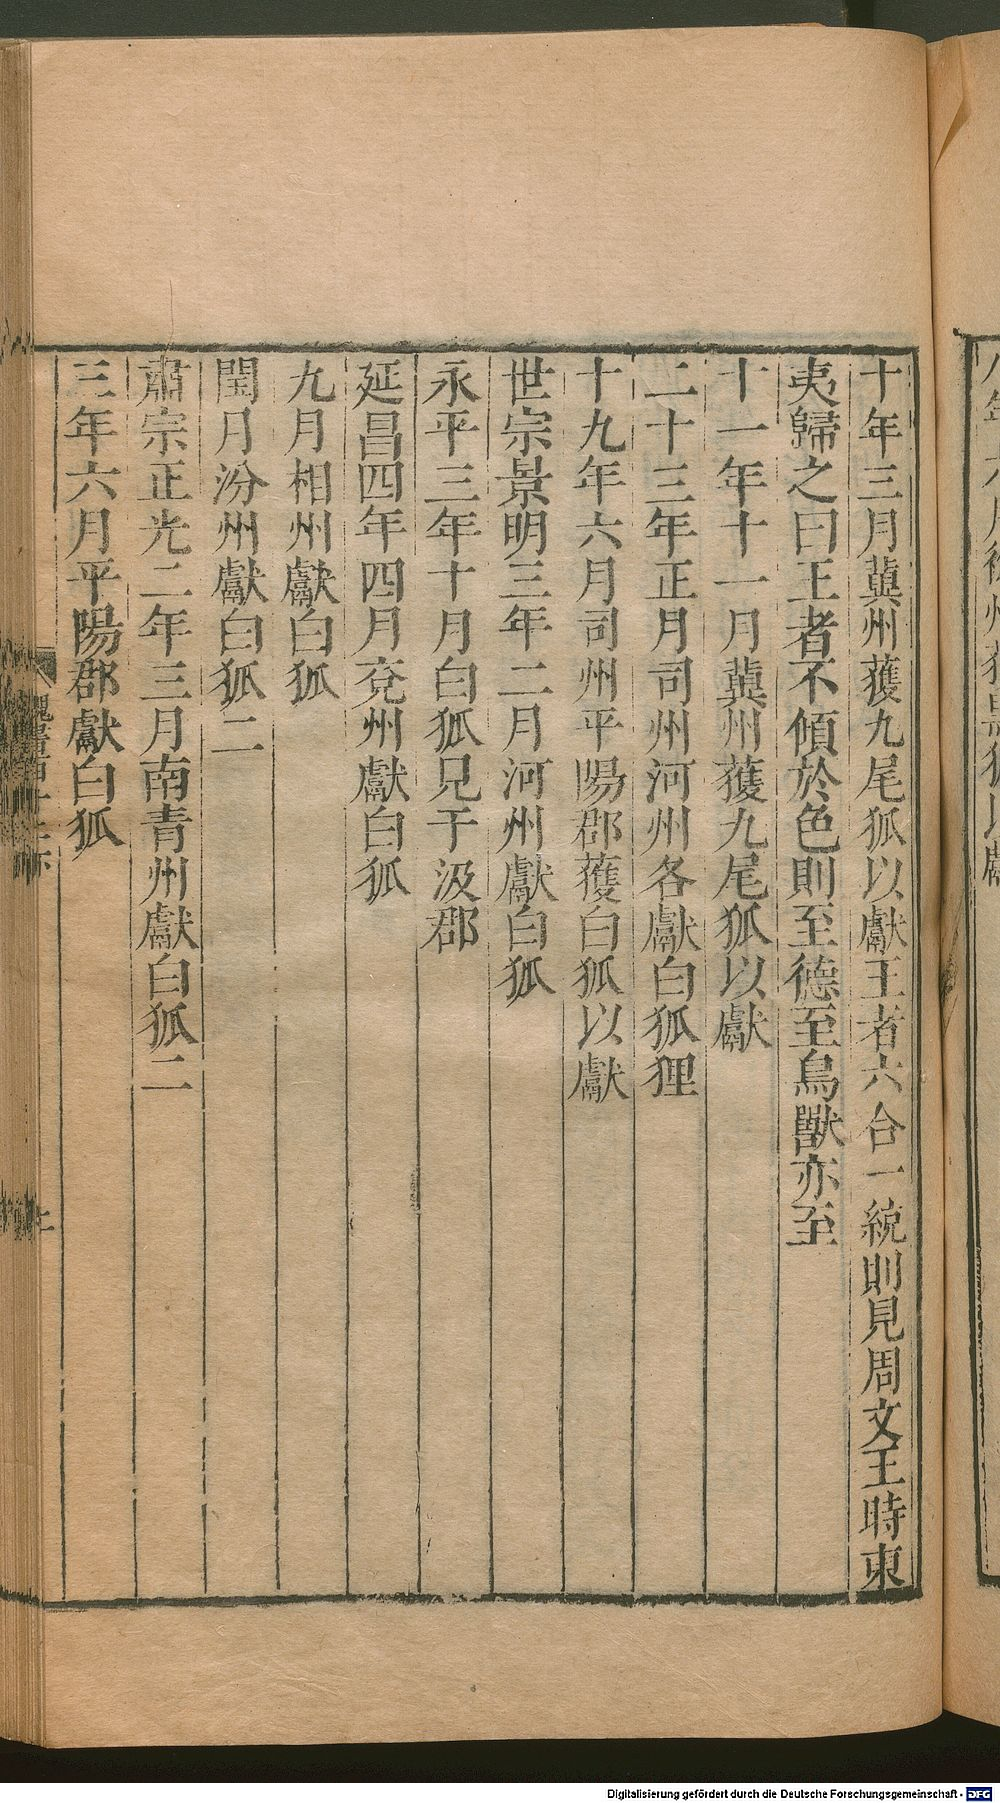 十年三月冀州獲九尾狐以獻王者六合一統則見周文王時東
夷歸之曰王者不傾於色則至德至鳥獸亦至
十一年十一月冀州獲九尾狐以獻
二十三年正月司州河州各獻白狐狸
十九年六月司州平陽郡獲白狐以獻
世宗景明三年二月河州獻白狐
永平三年十月白狐見于汲郡
延昌四年四月兗州獻白狐
九月相州獻白狐
閏月汾州獻白狐二
肅宗正光二年三月南青州獻白狐二
三年六月平陽郡獻白狐
Digitalisierung gefördert durch die Deutsche Forschungsgemeinschaft - DFG